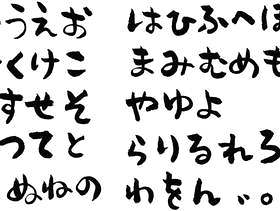 うえお
くけこ
すせそ
つてと
ぬねの
はひふへほ
まみむめも
やゆよ
らりるれろ
わをん